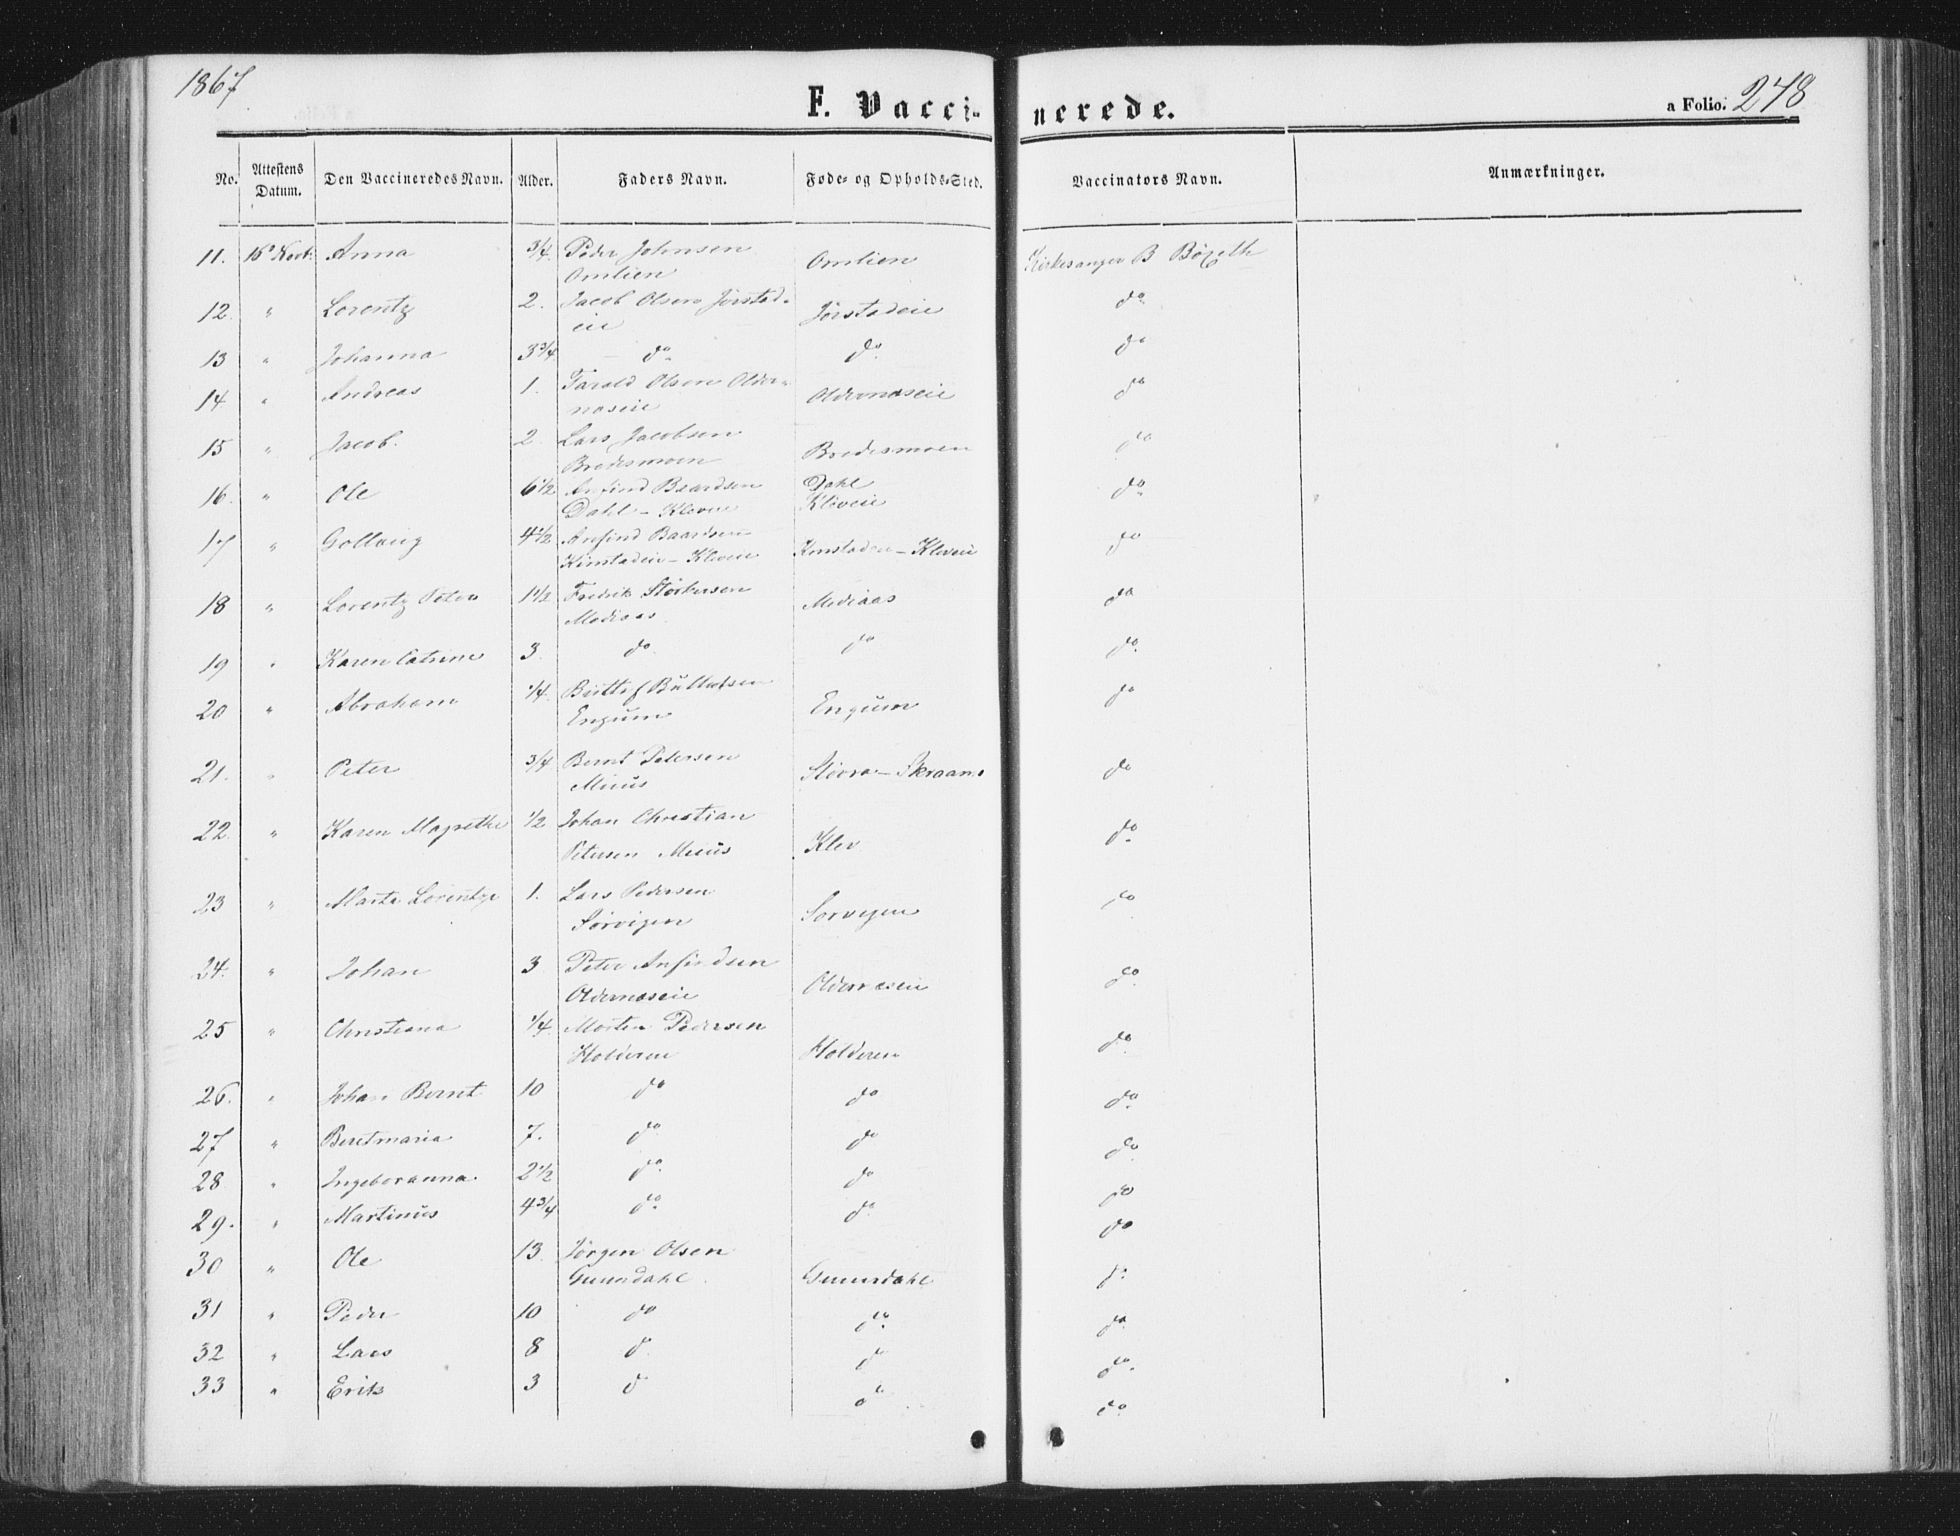 1867
F. Vaccinerede.
a Folio. 248
No. Attestens Datum. Den Vaccineredes Navn. Alder. Faders Navn. Føde- og Opholds-Sted. Vaccinators Navn. Anmærkninger.
11. Anna 3/4 Peder Johnsen Kirkesanger B
Omlien Omlien
12. " Lorentz 2. Jacob Olsen Jørstad-
eie Jørstadeie do
13 " Johanna 3 3/4 do do do
14 " Andreas 1. Olsen Older-
næseie Oldernæseie do
15 " Jacob. 2. Lars Jacobsen
Bredesmoen Bredesmoen do
16. " Ole 6 1/2 Anfind Baardsen Dahl do
Dahl - Kleveie Kleveie
17 " Gollaug 4 1/2 Anfind Baardsen
Kimstadeie - Kleveie - Kleveie do
18 " Lorentz Peter 1 1/2 Fredrik Størkersen
Mediaas Mediaas do
19 " Karen Catrine 3 do do do
20 " Abraham 1/4.
Engum Engum do
21. " Peter 3/4 Bernt Petersen
Skraam do
22. " Karen Magrethe 1/2 Johan Christian
Petersen Klev do
23 " Marta Lorentze 1. Lars Pedersen
Sørvigen Sørvigen do
24. " Johan 3 Peter Anfindsen
Oldernæseie Oldernæseie do
25 " Christiana 1/4. Morten Pedersen
Holderen Holderen do
26. " Johan Bernt 10 do do do
27 " Beretmaria 7. do do do
28 " Ingeboranna. 2 1/2 do do do
29. " Martinus 4 3/4 do do do
30 " Ole 13. Jørgen Olsen
do
31 " Peder 10 do do do
32 " Lars 8 do do do
33 " Erik 3 do do do